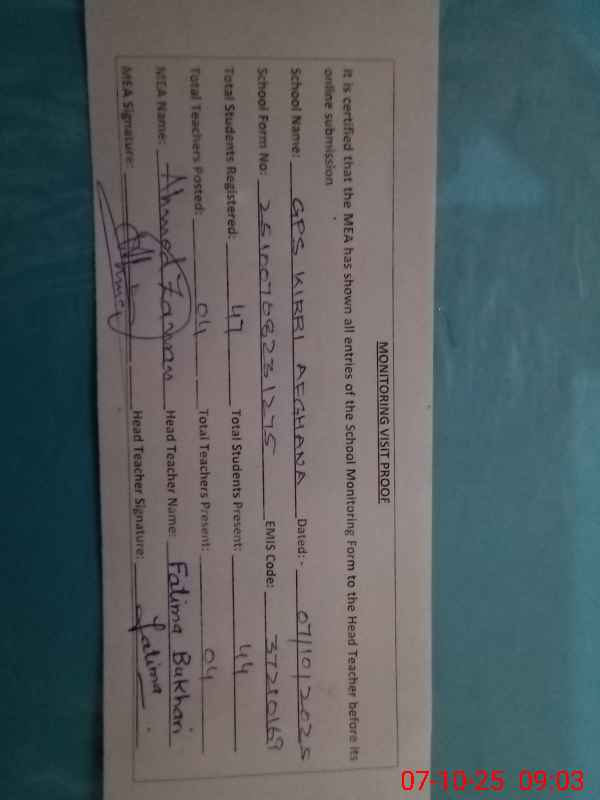 MONITORING VISIT PROOF
It is certified that the MEA has shown all entries of the School Monitoring Form to the Head Teacher before its
online submission
School Name: GPS KIRRI AFGHANA Dated:- 07/10/2025
School Form No: EMIS Code: 37210169
Total Students Registered: 47 Total Students Present: 44
Total Teachers Posted: 04 Total Teachers Present: 04
MEA Name: Ahmad Head Teacher Name: Fatima Bukhari
MEA Signature: Head Teacher Signature: Fatima
07-10-25 09:03